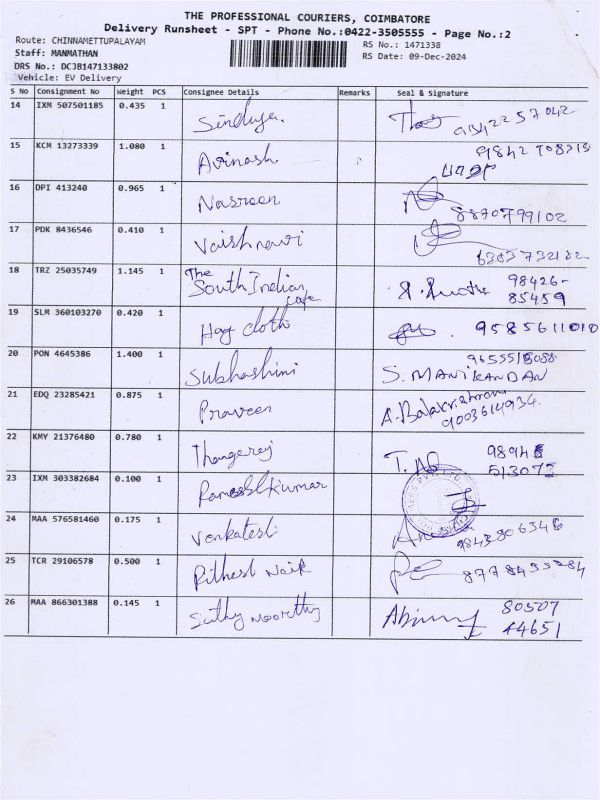 THE PROFESSIONAL COURIERS, COIMBATORE
Delivery Runsheet - SPT - Phone No.:0422-3505555 - Page No.:2
Route: CHINNAMETTUPALAYAM
RS No.: 1471338
Staff: MANMATHAN
RS Date: 09-Dec-2024
DRS No.: DCJB147133802
Vehicle: EV Delivery
S No Consignment No Weight PCS Consignee Details Remarks Seal & Signature
14 IXM 507501185 0.435 1 Sinduja.
15 KCM 13273339 1.080 1 Avinash
16 DPI 413240 0.965 1 Nasreen 8870799102
17 PDK 8436546 0.410 1 Vaishnavi
18 TRZ 25035749 1.145 1 The South Indian cafe 98426-
85459
19 SLM 360103270 0.420 1 9585611010
20 PON 4645386 1.400 1 Subhashini S. MANIKANDAN
21 EDQ 23285421 0.875 1 Praveen A. Balakrishnan
9003614934.
22 KMY 21376480 0.780 1 Thangaraj
23 IXM 303382684 0.100 1 Rameshkumar
24 MAA 576581460 0.175 1 Venkatesh 9843806346
25 TCR 29106578 0.500 1 Rithesh Naik
26 MAA 866301388 0.145 1 80507
44651